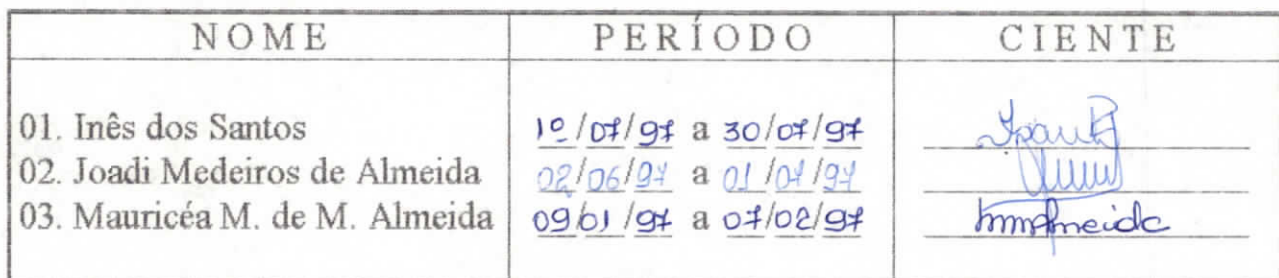 NOME PERÍODO CIENTE
01. Inês dos Santos 1º/07/97 a 30/07/97
02. Joadi Medeiros de Almeida 02/06/97 a 01/07/97
03. Mauricéa M. de M. Almeida 09/01/97 a 07/02/97 mmAlmeida